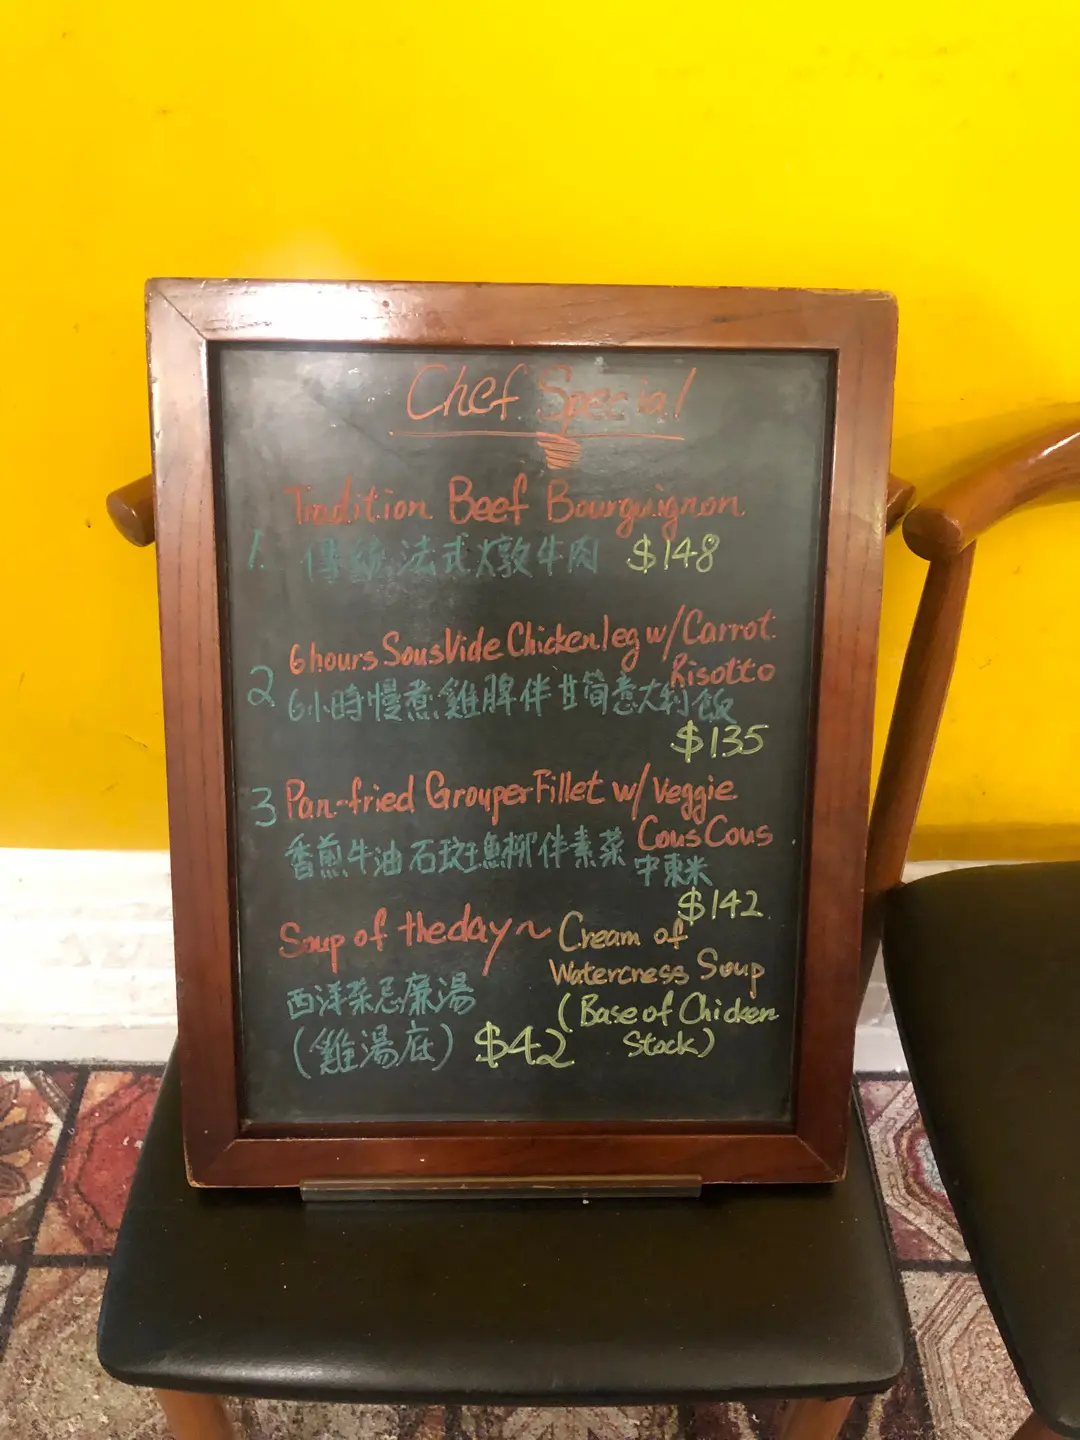 Chef Special
Tradition Beef Bourguignon
1. 傳統法式燉牛肉 $148
6 hours SousVide Chicken leg w/ Carrot
Risotto
2 6小時慢煮雞脾伴甘筍意大利飯
$135
3 Pan-fried Grouper Fillet w/ Veggie
Cous Cous
香煎牛油石斑魚柳伴素菜
中東米
$142
Soup of the day~ Cream of
Watercress Soup
西洋菜忌廉湯
(Base of Chicken
Stock)
(雞湯底) $42